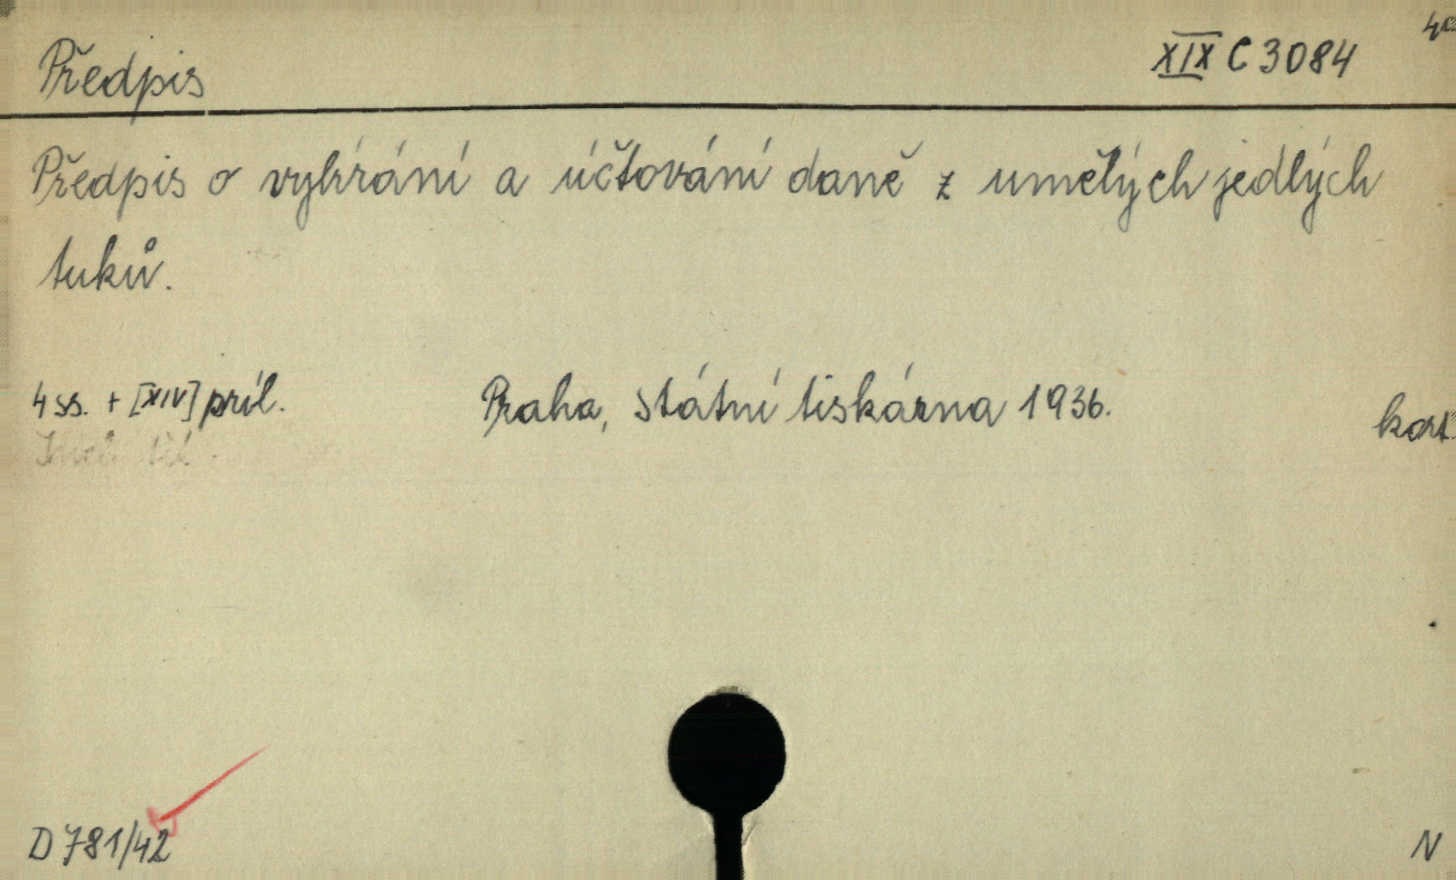 Předpis XIX C 3084
Předpis o vybírání a účtování daně z umělých jedlých
tuků.
4 ss. + [XIV] příl. Praha, Státní tiskárna 1936. kart.
D 781/42 N